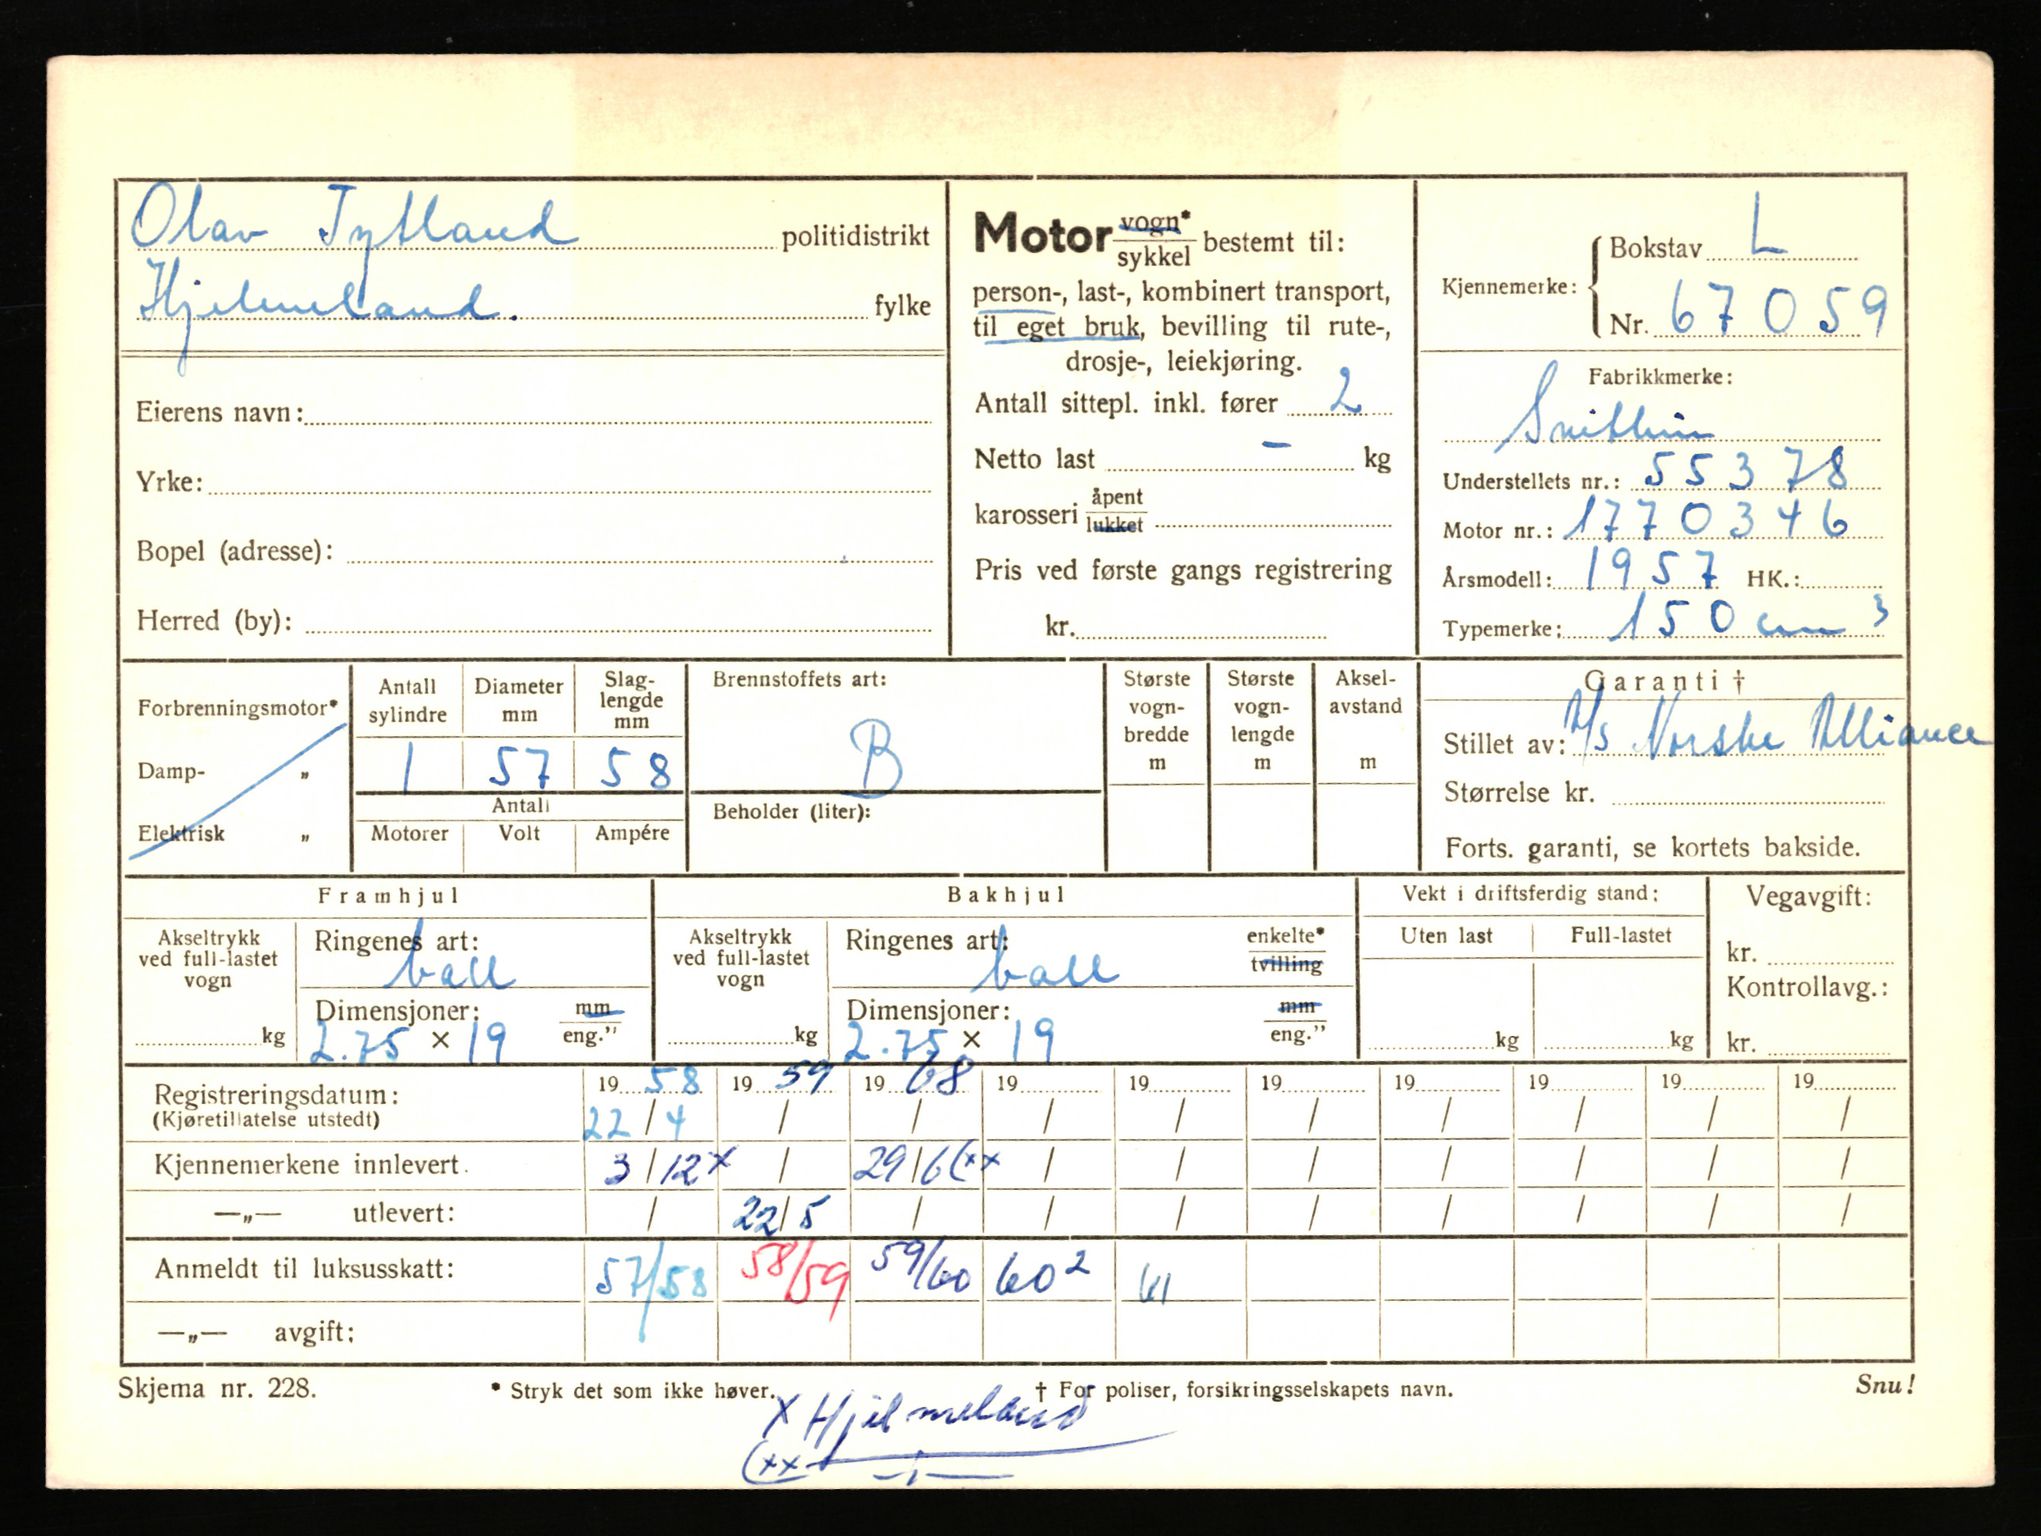 Olav Tytland politidistrikt
Hjelmeland. fylke
Eierens navn:
Yrke:
Bopel (adresse):
Herred (by):
Motor vogn* sykkel bestemt til:
person-, last-, kombinert transport,
til eget bruk, bevilling til rute-,
drosje-, leiekjøring.
Antall sittepl. inkl. fører 2
Netto last – kg
karosseri åpent lukket
Pris ved første gangs registrering
kr.
Kjennemerke: Bokstav L
Nr. 67059
Fabrikkmerke:
Understellets nr.: 55378
Motor nr.: 1770346
Årsmodell: 1957 HK.:
Typemerke: 150 cm³
Forbrenningsmotor*
Damp- „
Elektrisk „
Antall sylindre 1
Diameter mm 57
Slag-lengde mm 58
Antall
Motorer Volt Ampére
Brennstoffets art:
B
Beholder (liter):
Største vogn-bredde m
Største vogn-lengde m
Aksel-avstand m
Garanti †
Stillet av: A/S Norske Alliance
Størrelse kr.
Forts. garanti, se kortets bakside.
Framhjul
Akseltrykk ved full-lastet vogn
kg
Ringenes art: ball
Dimensjoner: mm eng."
2.75 × 19
Bakhjul
Akseltrykk ved full-lastet vogn
kg
Ringenes art: ball enkelte* tvilling
Dimensjoner: mm eng."
2.75 × 19
Vekt i driftsferdig stand:
Uten last Full-lastet
kg kg
Vegavgift:
kr.
Kontrollavg.:
kr.
Registreringsdatum: 19 58 19 59 19 68 19 19 19 19 19 19 19
(Kjøretillatelse utstedt) 22/4 / / / / / / / / /
Kjennemerkene innlevert. 3/12 x / 29/6 (xx / / / / / / /
—„— utlevert: / 22/5 / / / / / / / /
Anmeldt til luksusskatt: 57/58 58/59 59/60 60² 61
—„— avgift:
Skjema nr. 228. * Stryk det som ikke høver. † For poliser, forsikringsselskapets navn. Snu!
X Hjelmeland
(xx —„—